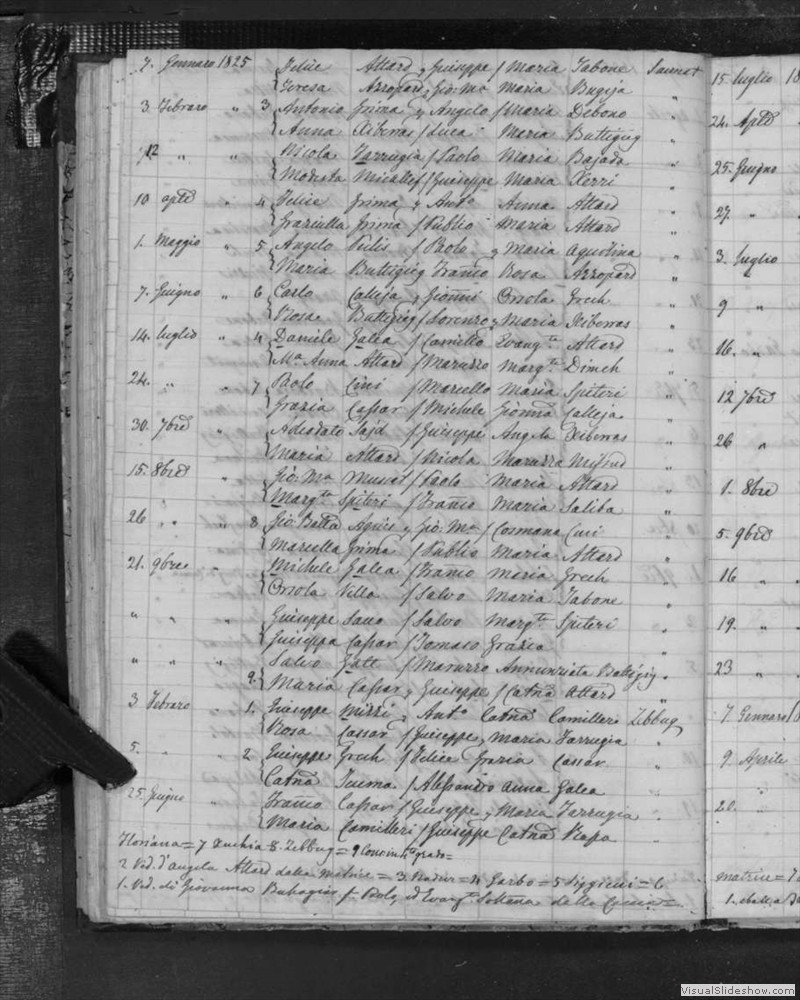 7. Gennaro 1825 Felice Attard, Giuseppe / Maria Tabone Saunat
Teresa Azzopard, Gio: Ma Maria Bugeja "
3 Febraro " 3 Antonio Grima, Angelo / Maria Debono "
Anna Xiberras / Luca Maria Buttigieg "
12 " " Nicola Farrugia / Paolo Maria Bajada "
Modesta Micallef / Giuseppe Maria Xerri "
10 aple " 4 Felice Grima, Anto Anna Attard "
Graziulla Grima / Publio Maria Attard "
1. Maggio " 5 Angelo / Paolo, Maria Agostina "
Maria Buttigieg Franco Rosa Azzopard "
7. Giugno " 6 Carlo Calleja, Gionni Orsola Grech "
Rosa Buttigieg / Lorenzo, Maria Xiberras "
14. luglio " 4 Daniele Galea / Camillo Evangta Attard "
Ma Anna Attard / Maruzzo Margta Dimech "
24. " " 7 Paolo Cini / Marcello Maria Spiteri "
Grazia Cassar / Michele Gionna Calleja "
30. 7bre " Adeodato Said / Giuseppe Angela Xiberras "
Maria Attard / Nicola Maruzza Mifsud "
15. 8bre " Gio: Ma Muscat / Paolo Maria Attard "
Margta Spiteri / Franco Maria Saliba "
26 " " 8 Gio: Batta, Gio: Ma / Cosmana Cini "
Marcella Grima / Publio Maria Attard "
21. 9bre " Michele Galea / Franco Maria Grech "
Orsola Vella / Salvo Maria Tabone "
" " Giuseppe / Salvo Margta Spiteri "
Giuseppa Cassar / Tomaso Grazia
" " " Salvo Gatt / Maruzzo Annunziata Buttigieg "
9. Maria Cassar, Giuseppe / Catna Attard "
3 Febraro " 1. Giuseppe Mizzi, Anto Catna Camilleri Zebbug
Rosa Cassar / Giuseppe, Maria Farrugia "
5. " " 2 Giuseppe Grech / Felice Grazia Cassar "
Catna / Alessandro Anna Galea "
25. Giugno " Franco Cassar / Giuseppe, Maria Farrugia "
Maria Camilleri / Giuseppe Catna "
Floriana = 7 8. Zebbug = 9 Cons: in 4to grado =
2 Ved. d'Angela Attard dalla Matrice = 3 Nadur = 4 Garbo = 5 = 6
1. Ved. di Giovanna Buhagiar, Paolo, ed Evangta
15 luglio 18
24. Aple
25. Giugno
27. "
3. luglio
9 "
16. "
12 7bre
26 "
1. 8bre
5. 9bre
16 "
19. "
23 "
7. Gennaro
9. Aprile
22. "
matrice =
VisualSlideshow.com